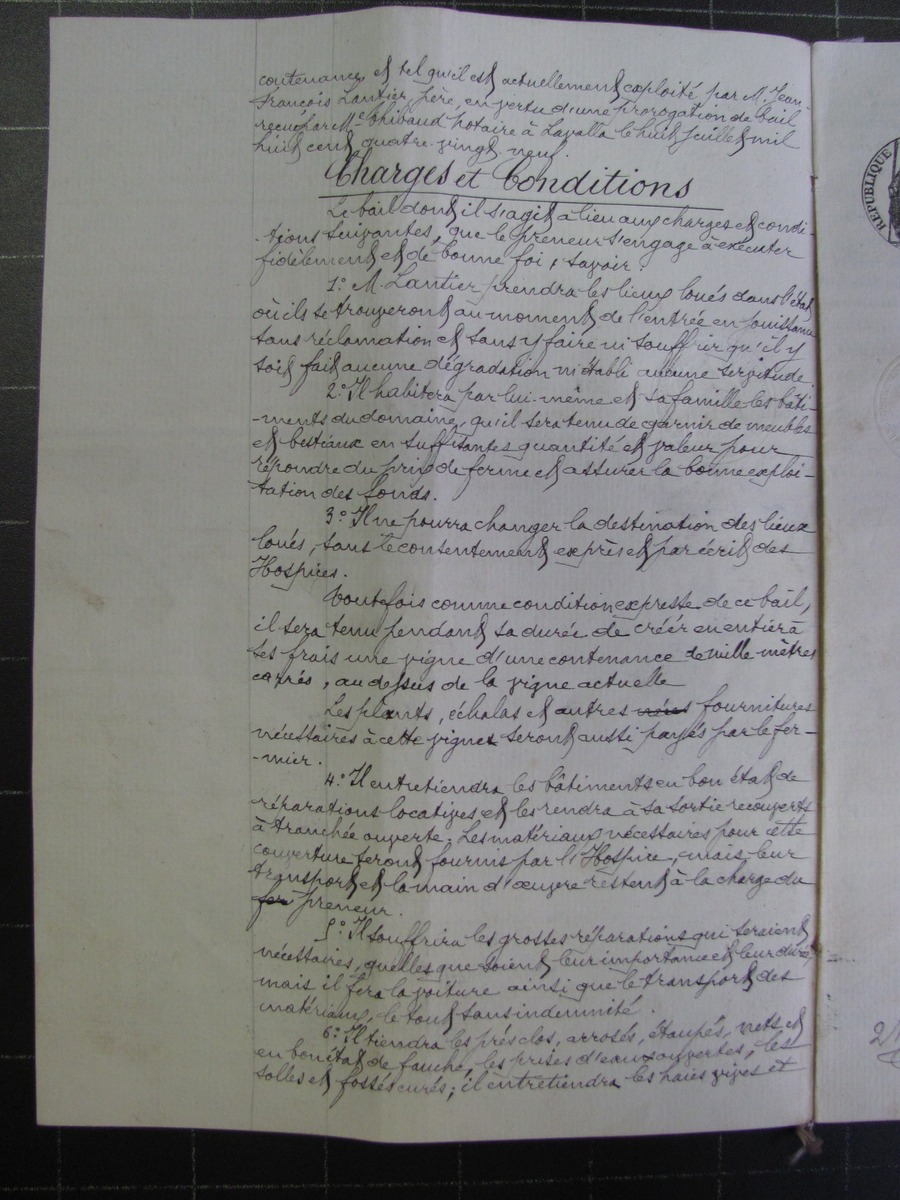 contenances et tel qu'il est actuellement exploité par M. Jean-
François Lantier, père, en vertu d'une prorogation de bail
reçu par Me Thivaud notaire à Lavalla le huit juillet mil
huit cent quatre-vingt-neuf.
Charges et Conditions
Le bail dont il s'agit a lieu aux charges et condi-
-tions suivantes, que le preneur s'engage à exécuter
fidèlement et de bonne foi, savoir :
1° M. Lantier prendra les lieux loués dans l'état
où ils se trouveront au moment de l'entrée en jouissance
sans réclamation et sans y faire ni souffrir qu'il y
soit fait aucune dégradation ni établi aucune servitude.
2° Il habitera par lui-même et sa famille les bâti-
-ments du domaine, qu'il sera tenu de garnir de meubles
et bestiaux en suffisantes quantité et valeur pour
répondre du prix de ferme et assurer la bonne exploi-
tation des fonds.
3° Il ne pourra changer la destination des lieux
loués, sans le consentement exprès et par écrit des
Hospices.
Toutefois comme condition expresse de ce bail,
il sera tenu pendant sa durée de créer en entier à
ses frais une vigne d'une contenance de mille mètres
carrés, au dessus de la vigne actuelle
Les plants, échalas et autres fournitures
nécessaires à cette vigne seront aussi payés par le fer-
-mier.
4° Il entretiendra les bâtiments en bon état de
réparations locatives et les rendra à sa sortie recouverts
à tranchée ouverte. Les matériaux nécessaires pour cette
couverture seront fournis par l'Hospice, mais leur
transport et la main d'œuvre restent à la charge du
fer preneur.
5° Il souffrira les grosses réparations qui seraient
nécessaires, quelles que soient leur importance et leur durée
mais il fera la voiture ainsi que le transport des
matériaux, le tout sans indemnité.
6° Il tiendra les prés clos, arrosés, étaupés, nets et
en bon état de fauche, les prises d'eau ouvertes, les
solles et fossés curés ; il entretiendra les haies vives et
RÉPUBLIQUE